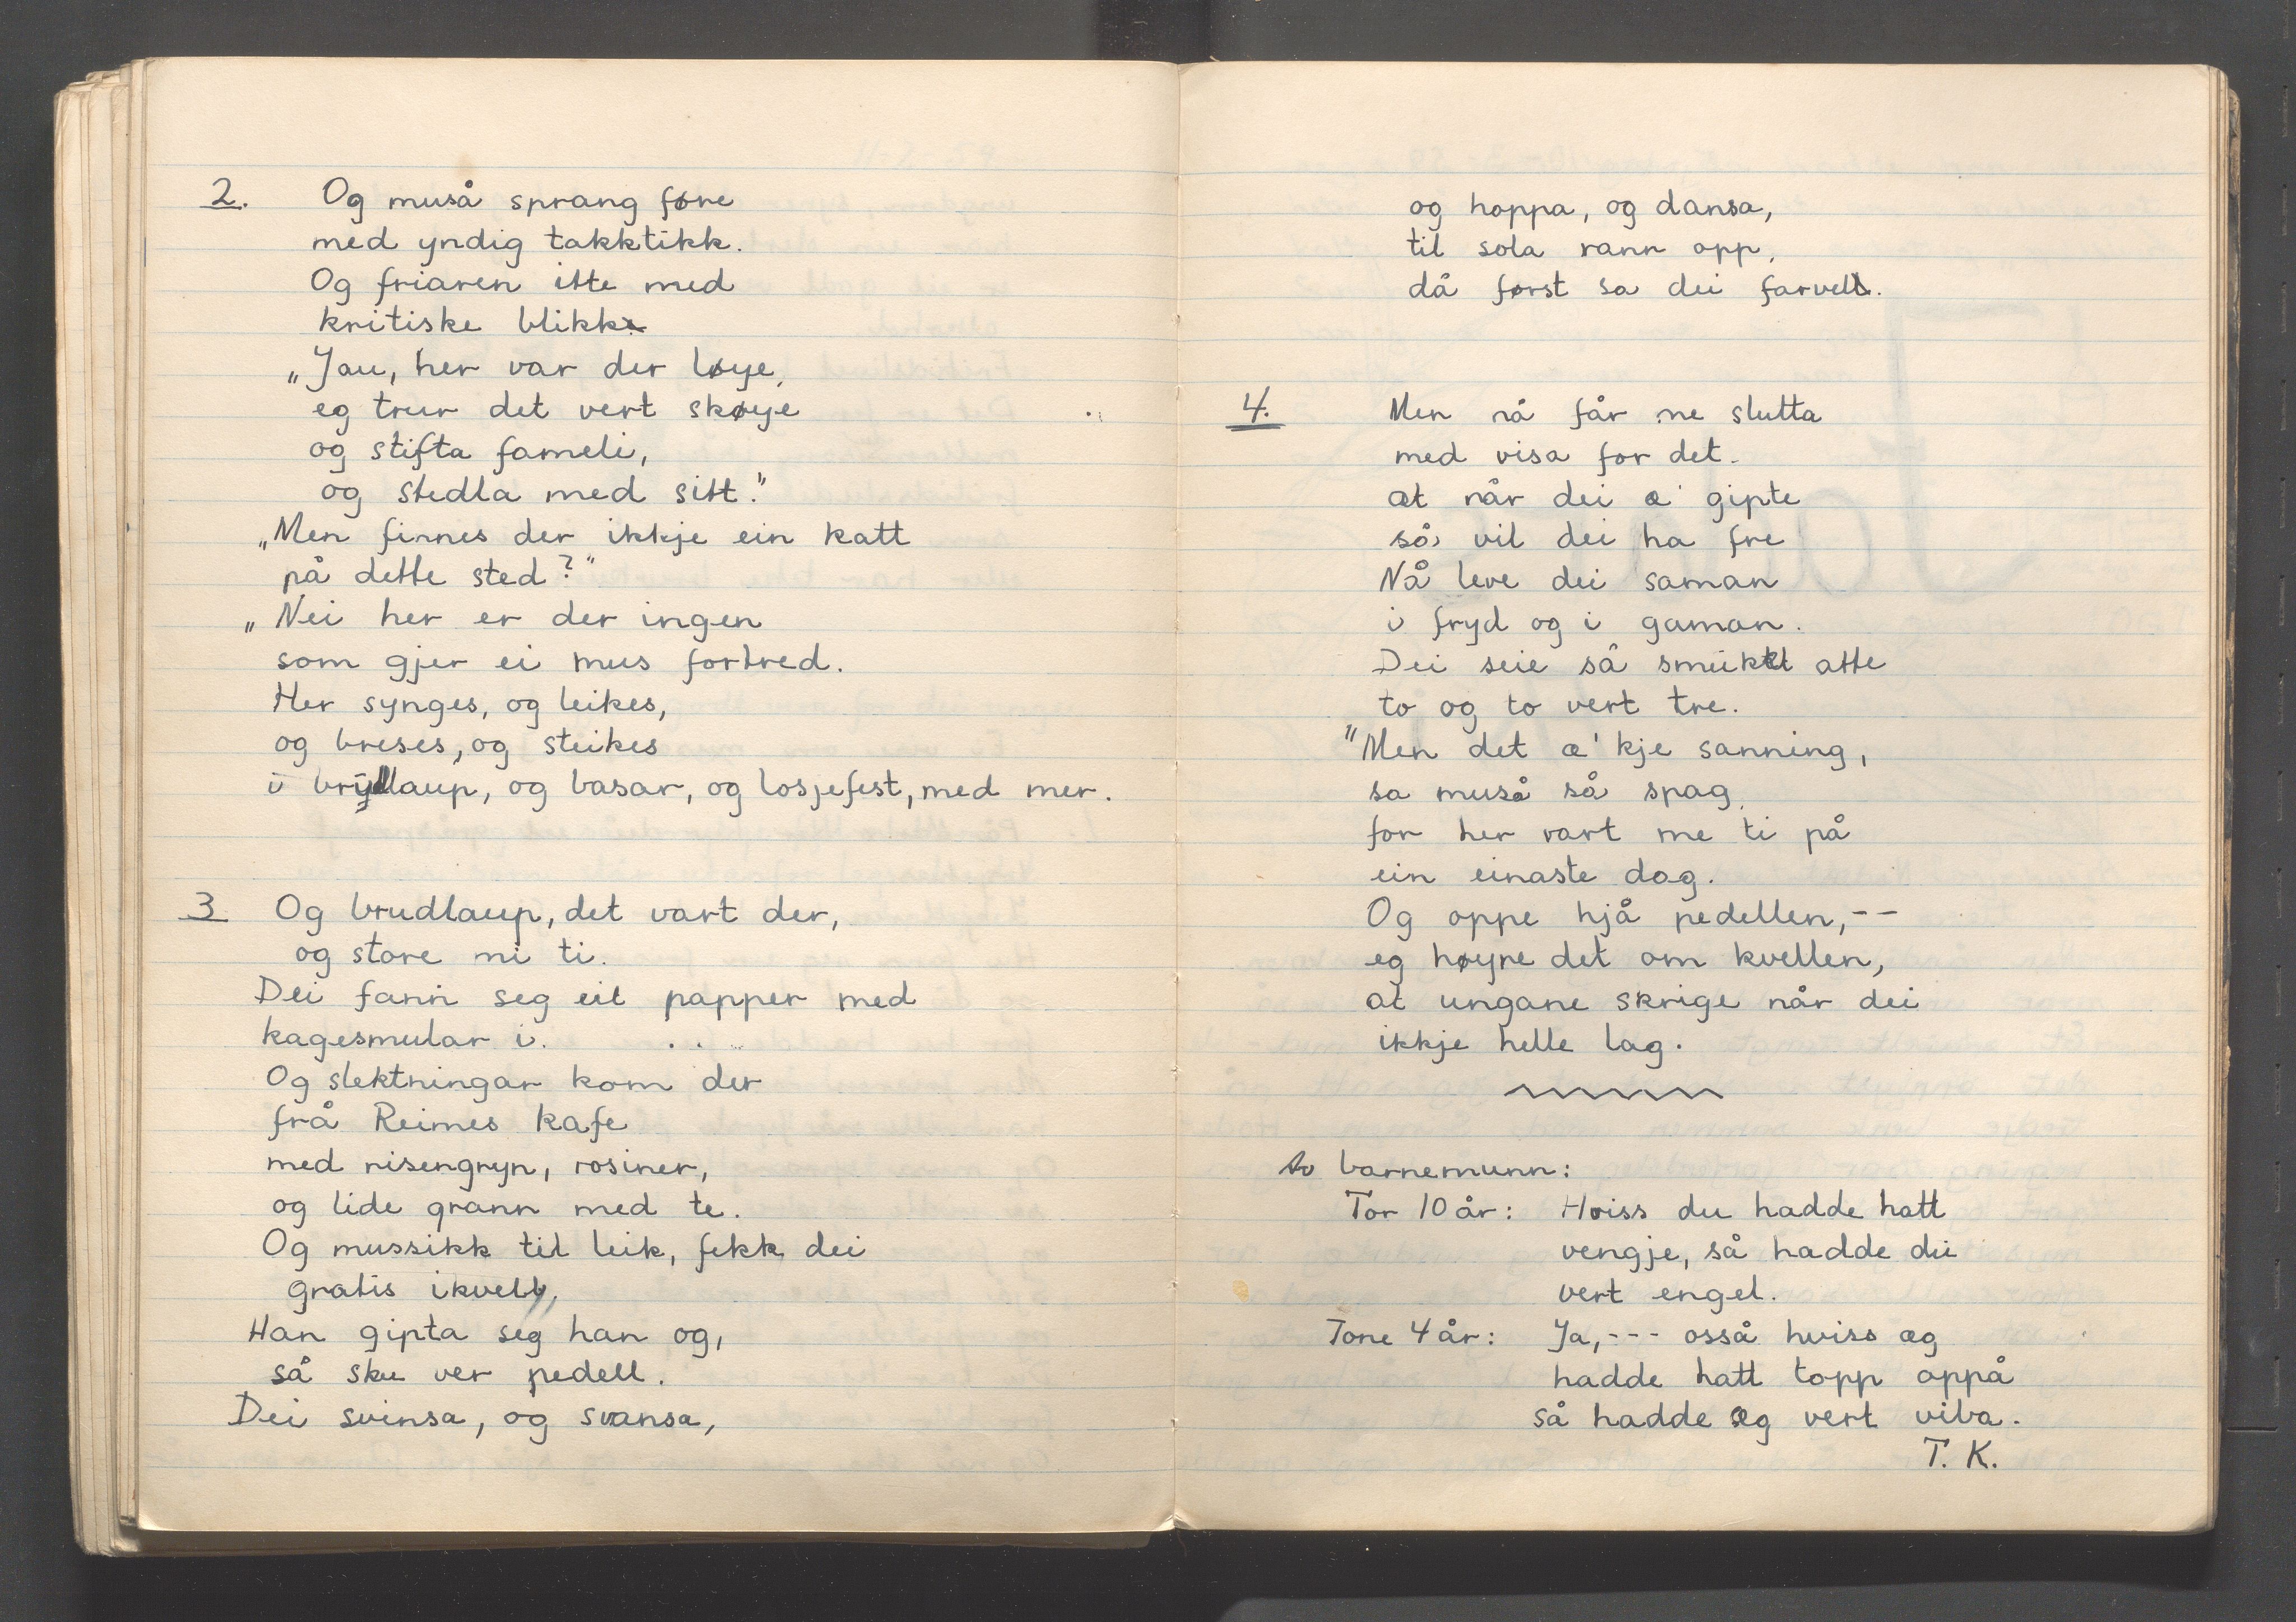 2. Og muså sprang føre
med yndig takktikk.
Og friaren itte med
kritiske blikk.
„Jau, her var der løye,
eg trur det vert skøye
og stifta fameli,
og stedla med sitt."
„Men finnes der ikkje ein katt
på dette sted?"
„Nei her er der ingen
som gjer ei mus fortred.
Her synges, og leikes,
og breses, og steikes
i brydlaup, og basar, og losjefest, med mer.
3 Og brudlaup, det vart der,
og store mi ti.
Dei fann seg eit papper med
kagesmular i.
Og slektningar kom der
frå Reimes kafe
med risengryn, rosiner,
og lide grann med te.
Og mussikk til leik, fekk dei
gratis ikvell,
Han gipta seg han og,
så sku ver pedell.
Dei svinsa, og svansa,
og hoppa, og dansa,
til sola rann opp,
då først sa dei farvell.
4. Men nå får me slutta
med visa for det.
at når dei æ' gipte
så vil dei ha fre
Nå leve dei saman
i fryd og i gaman.
Dei seie så smukt atte
to og to vert tre.
"Men det æ' kje sanning,
sa muså så spag,
for her vart me ti på
ein einaste dag.
Og oppe hjå pedellen,--
eg høyre det om kvellen,
at ungane skrige når dei
ikkje helle lag.
Av barnemunn:
Tor 10 år: Hviss du hadde hatt
vengje, så hadde du
vert engel.
Tone 4 år: Ja,--- osså hviss eg
hadde hatt topp oppå
så hadde eg vert viba.
T. K.